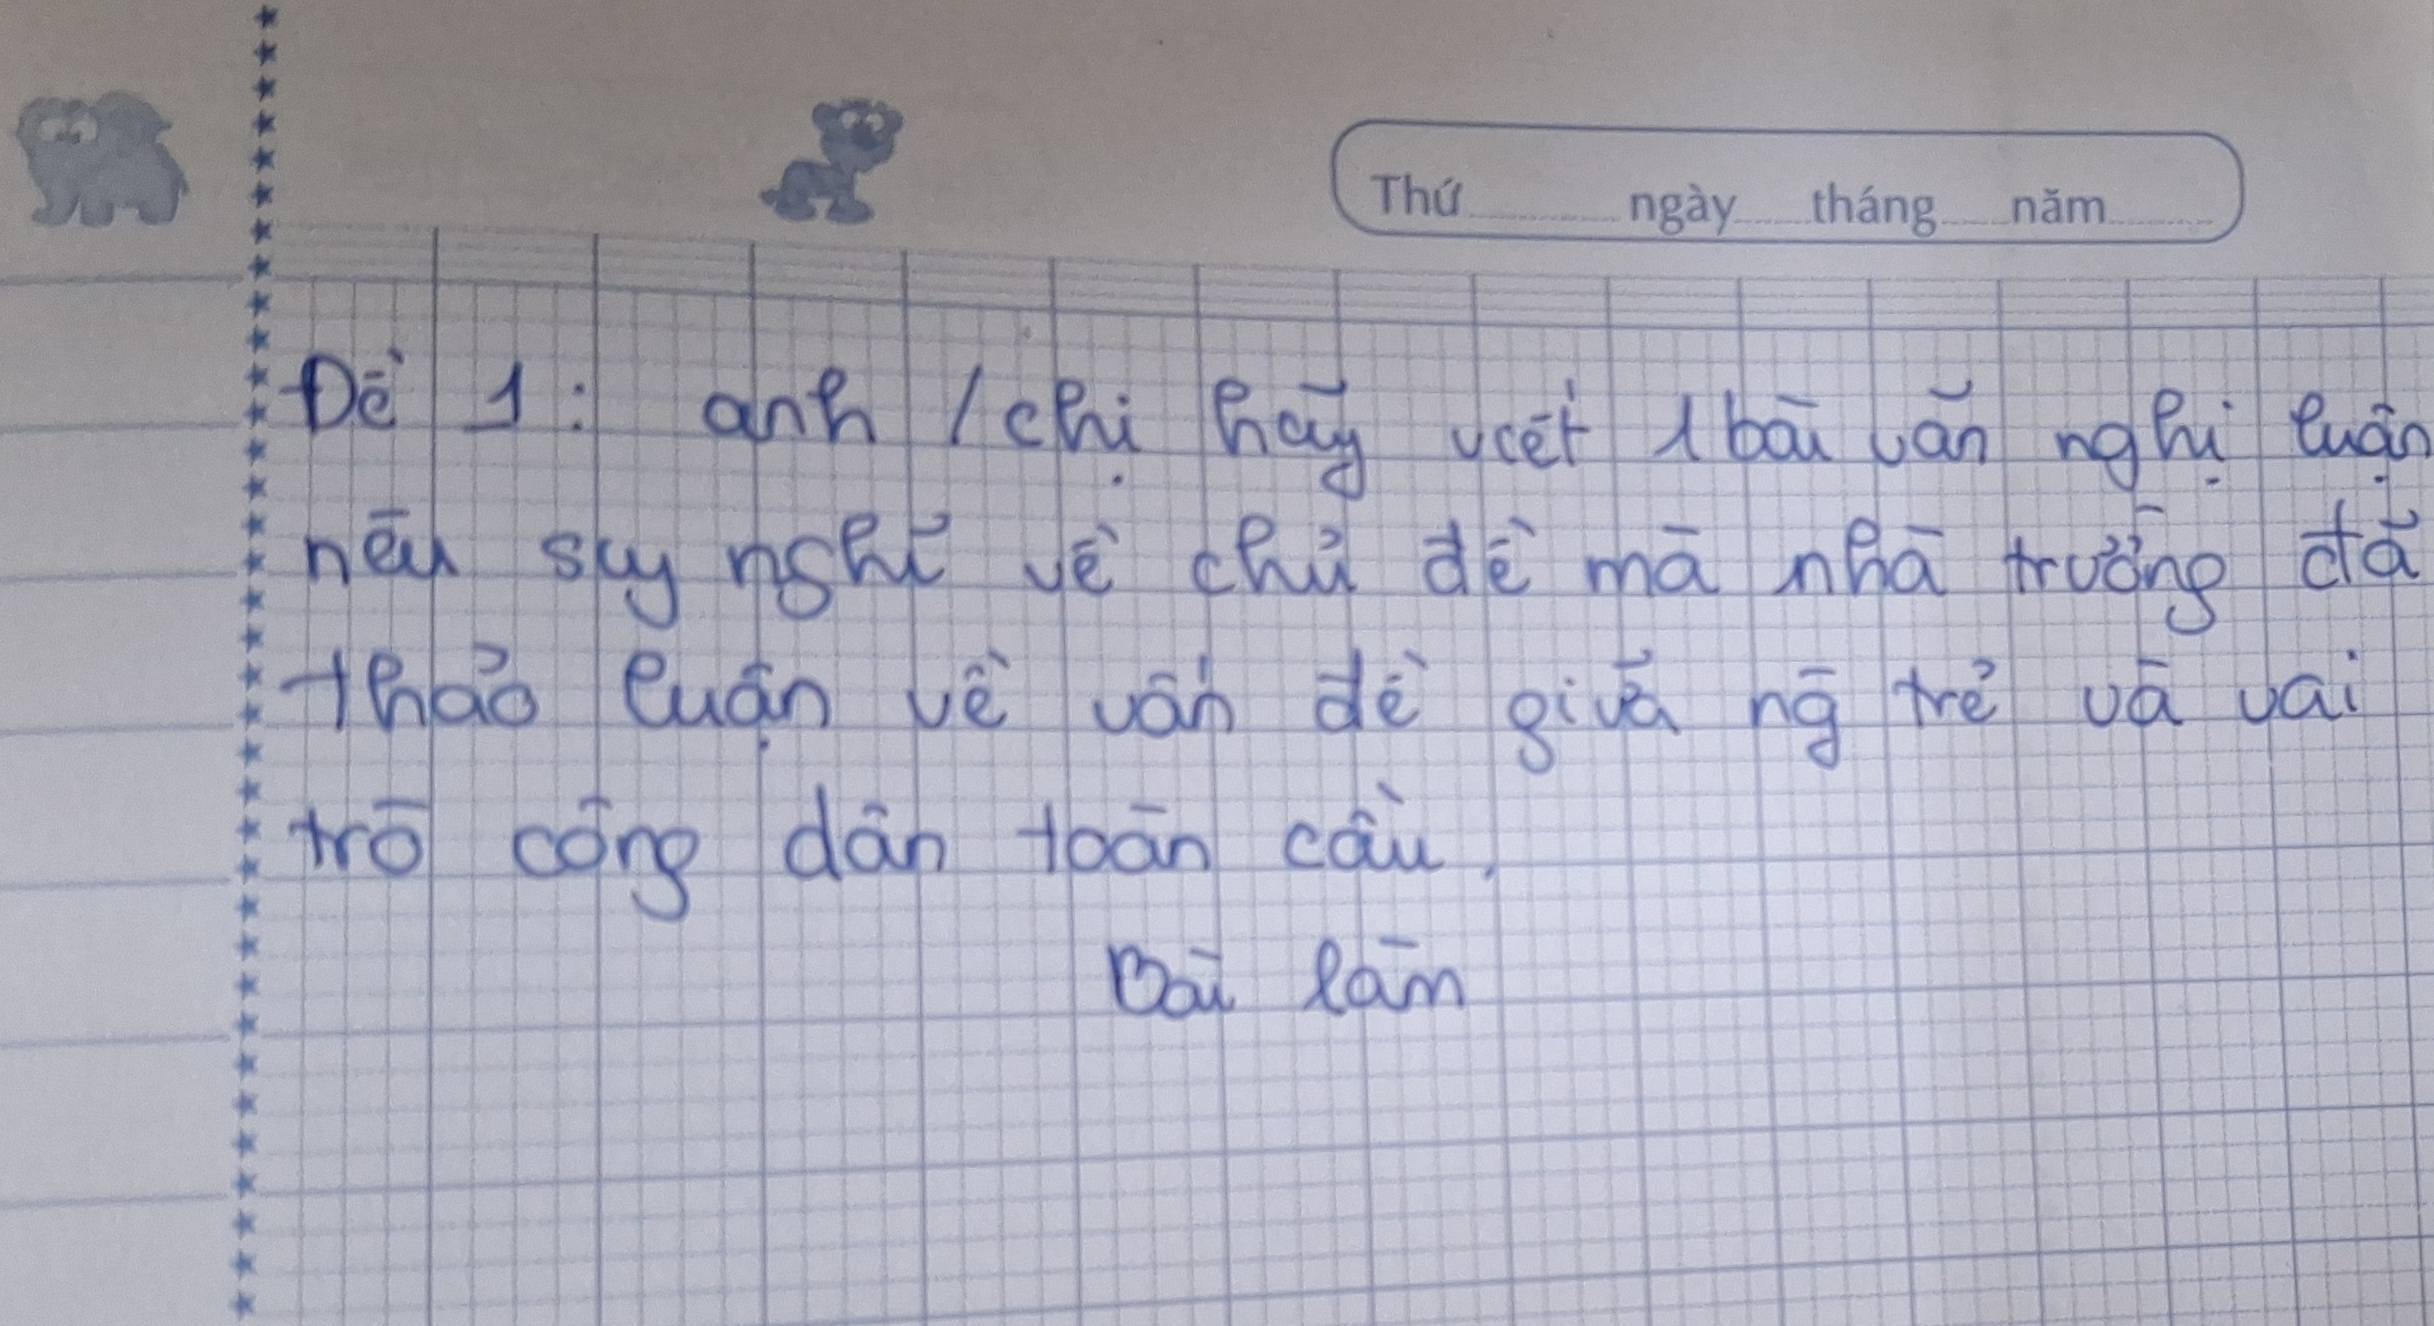 Thứ ngày tháng năm
Đề 1: anh / chị hãy viết 1 bài văn nghị luận
nêu suy nghĩ về chủ đề mà nhà trường đã
thảo luận về vấn đề giữa ng trẻ và vai
trò công dân toàn cầu.
Bài làm